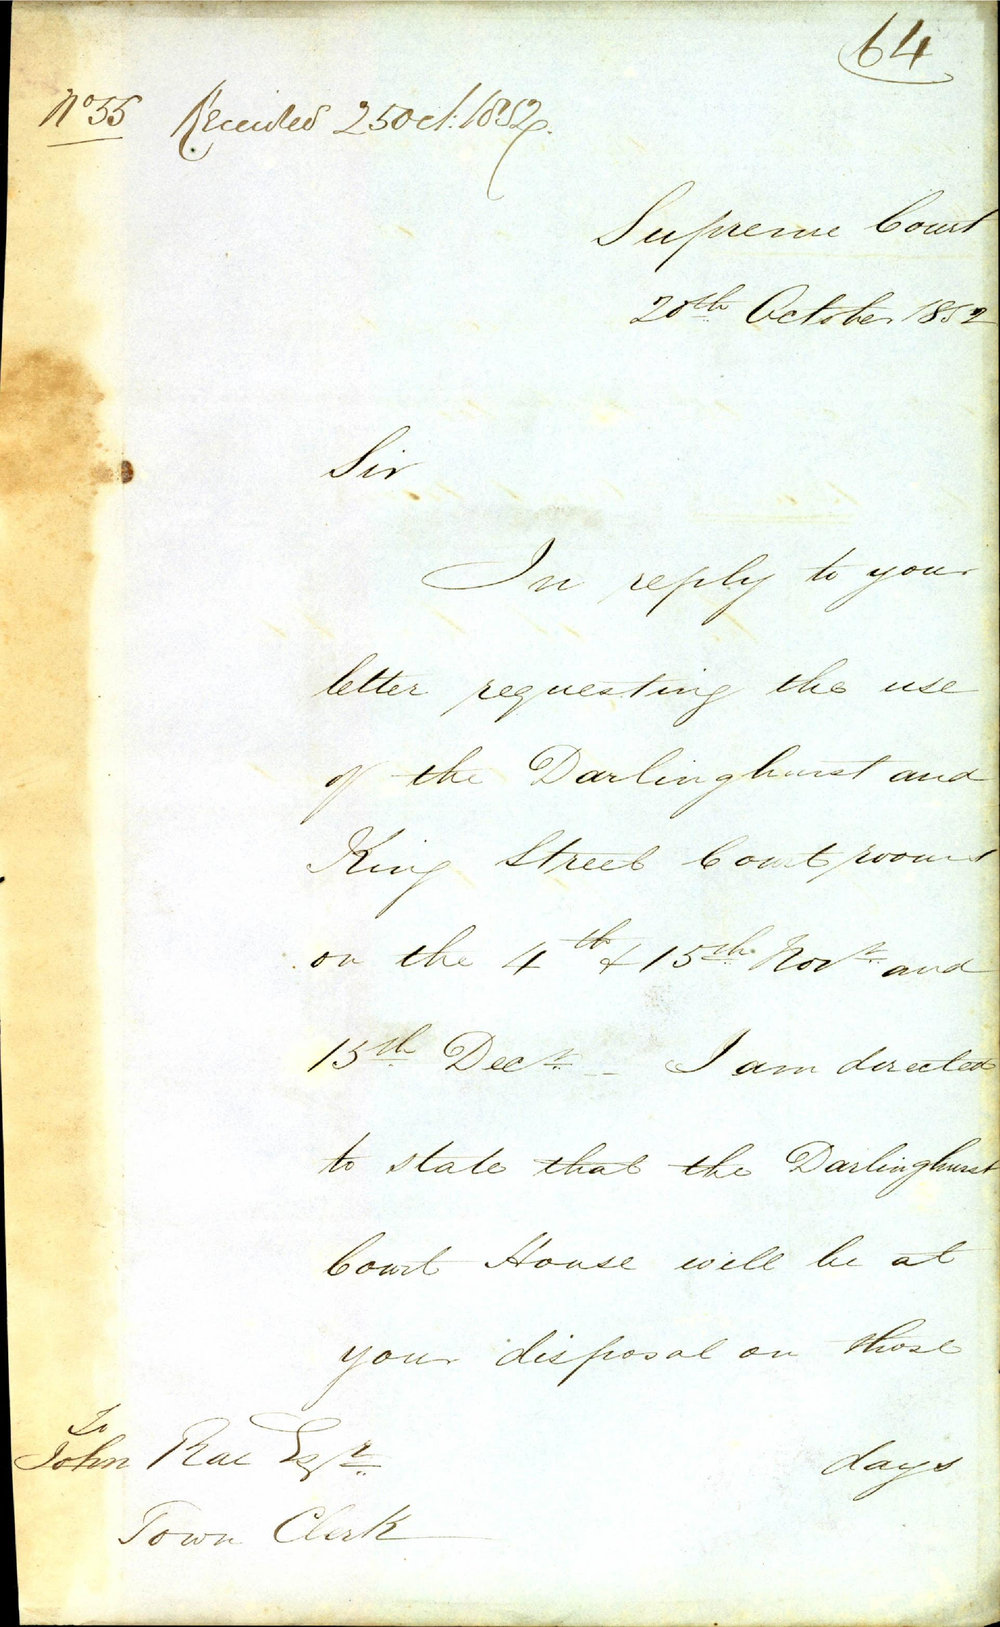 64
No 55 Received 25 Oct. 1852.
Supreme Court
20th October 1852
Sir
In reply to your
letter requesting the use
of the Darlinghurst and
King Street Court rooms
on the 4th & 15th Novr. and
15th Decr. _ I am directed
to state that the Darlinghurst
Court House will be at
your disposal on those
days
To
John Rae Esqr.
Town Clerk